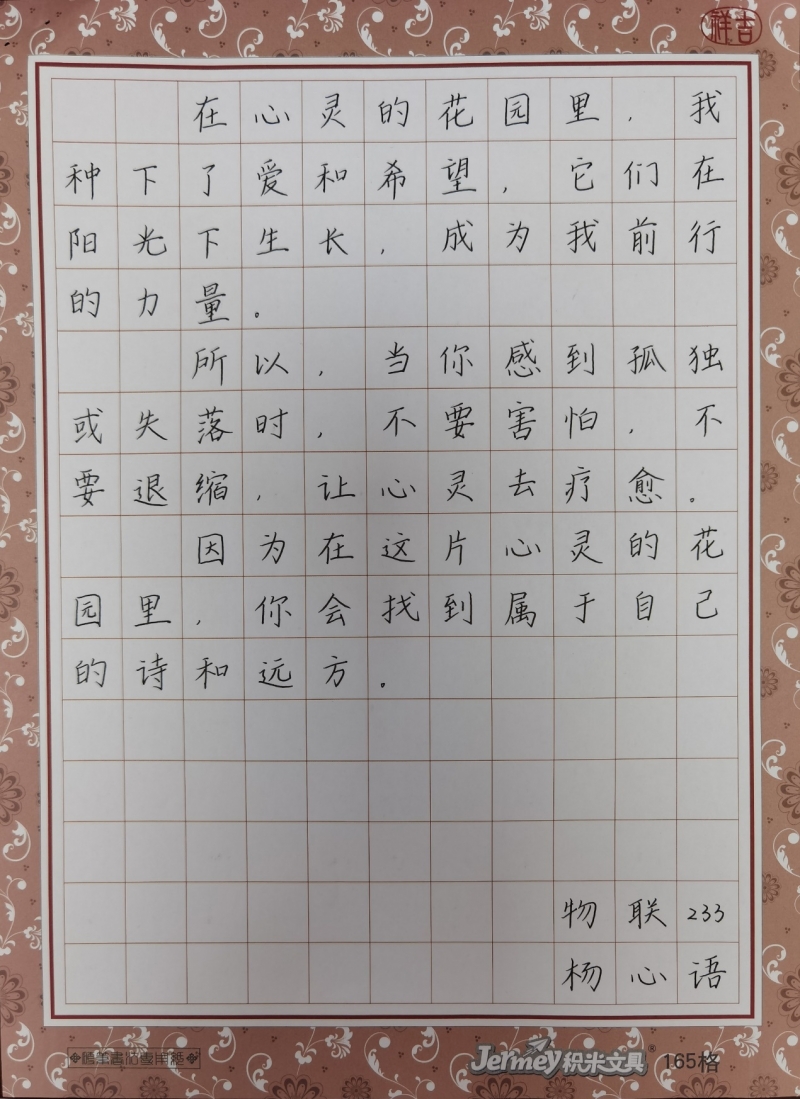 吉祥
在心灵的花园里，我
种下了爱和希望，它们在
阳光下生长，成为我前行
的力量。
所以，当你感到孤独
或失落时，不要害怕，不
要退缩，让心灵去疗愈。
因为在这片心灵的花
园里，你会找到属于自己
的诗和远方。
物联233
杨心语
硬筆書法專用紙
Jermey积米文具® 165格